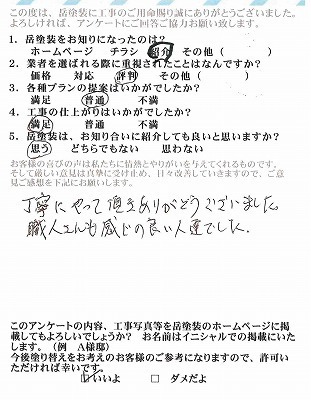 この度は、岳塗装に工事のご用命賜り誠にありがとうございました。
よろしければ、アンケートにご回答ご協力お願い致します。
1．岳塗装をお知りになったのは？
ホームページ　チラシ　紹介　その他（　　　）
2．業者を選ばれる際に重視されたことはなんですか？
価格　対応　評判　その他（　　　）
3．各種プランの提案はいかがでしたか？
満足　普通　不満
4．工事の仕上がりはいかがでしたか？
満足　普通　不満
5．岳塗装は、お知り合いに紹介しても良いと思いますか？
思う　どちらでもない　思わない
お客様の喜びの声は私たちに情熱とやりがいを与えてくれるものです。
そして厳しい意見は真摯に受け止め、日々改善していきますので、ご意
見ご感想を下記にお願いします。
丁寧にやって頂きありがとうございました。
職人さんも感じの良い人達でした。
このアンケートの内容、工事写真等を岳塗装のホームページに掲
載してもよろしいでしょうか？　お名前はイニシャルでの掲載にいた
します。（例　A様邸）
今後塗り替えをお考えのお客様のご参考になりますので、許可い
ただければ幸いです。
☑いいよ　□　ダメだよ